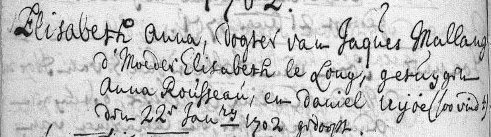 1702.
Elisabeth Anna, dogter van Jaques Mallang
d'Moeder Elisabeth le Long, getuygen
Anna Rousseau, en daniel
den 22 Jan 1702 gedoopt.